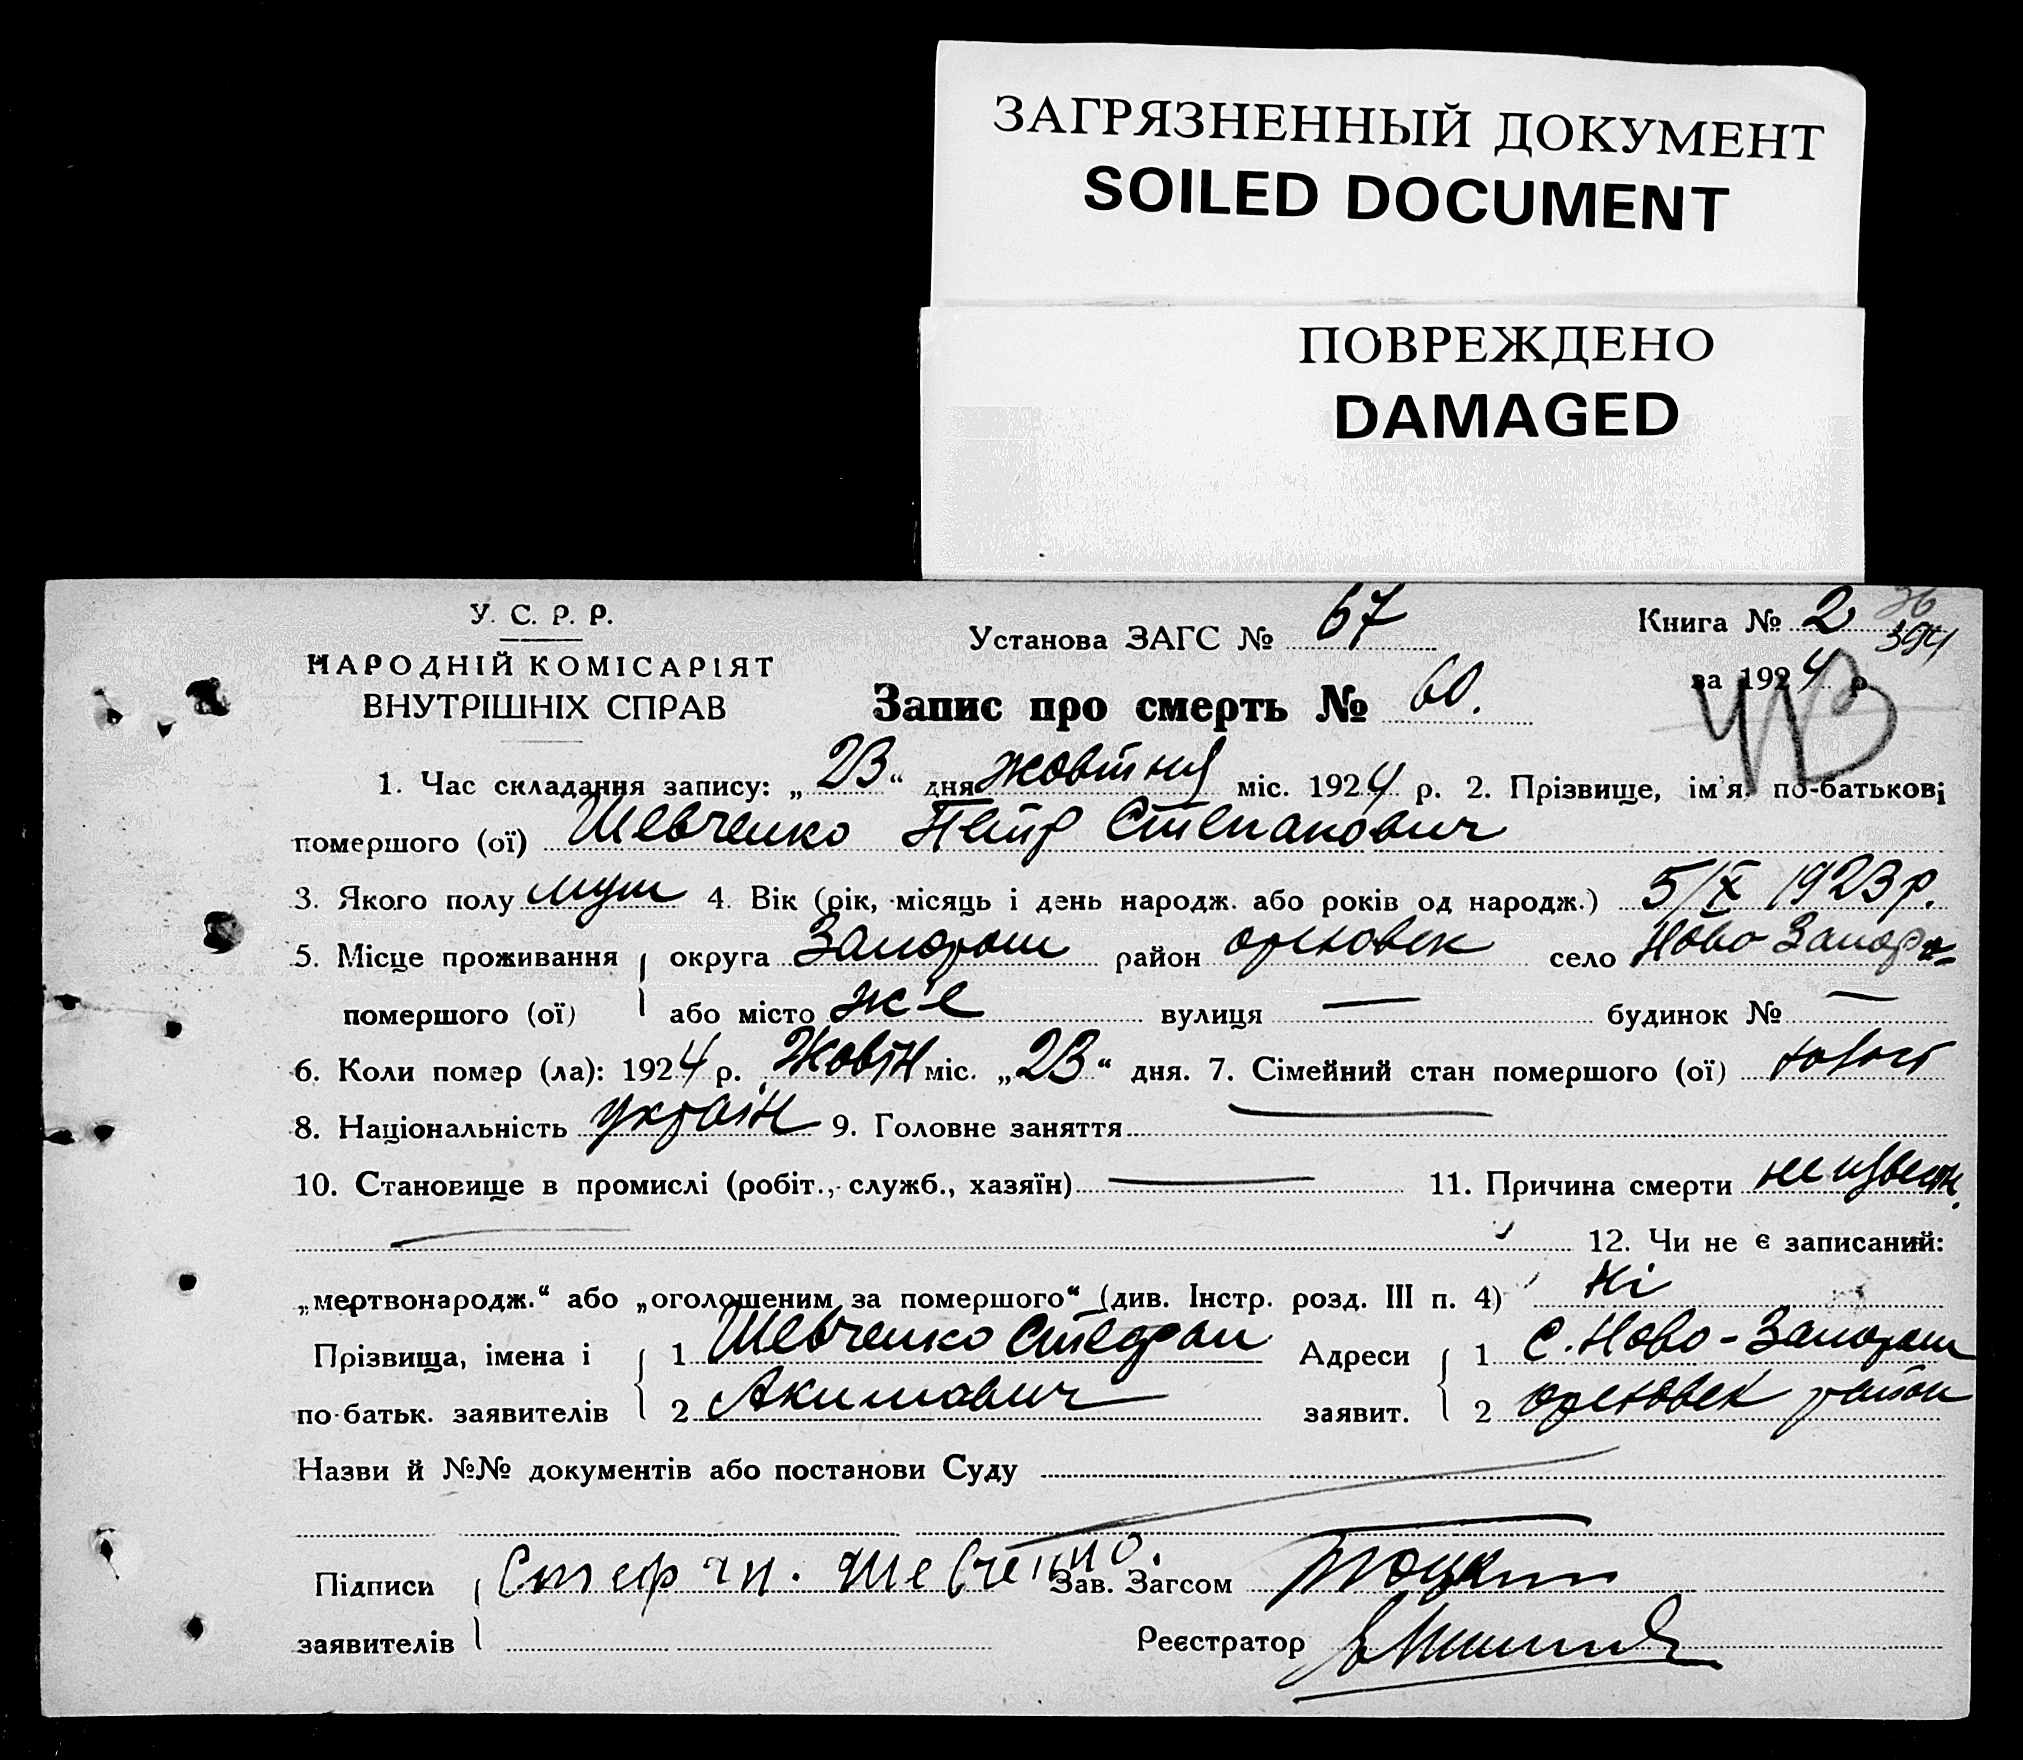 ЗАГРЯЗНЕННЫЙ ДОКУМЕНТ
SOILED DOCUMENT
ПОВРЕЖДЕНО
DAMAGED
У. С. Р. Р.
НАРОДНІЙ КОМІСАРІЯТ
ВНУТРІШНІХ СПРАВ
Установа ЗАГС № 67
Книга № 2
за 1924 р.
Запис про смерть № 60.
1. Час складання запису: „23“ дня жовтня міс. 1924 р. 2. Прізвище, ім'я, по-батькові
помершого (ої) Шевченко Петр Степанович
3. Якого полу муш 4. Вік (рік, місяць і день народж. або років од народж.) 5/X 1923 р.
5. Місце проживання округа Запорош район ореховск село Ново Запоро-
помершого (ої) або місто жʼє вулиця — будинок № —
6. Коли помер (ла): 1924 р. Жовтн міс. „23“ дня. 7. Сімейний стан помершого (ої)
8. Національність україн 9. Головне заняття —
10. Становище в промислі (робіт., служб., хазяїн) — 11. Причина смерти неизвестн.
12. Чи не є записаний:
„мертвонародж.“ або „оголошеним за помершого“ (див. Інстр. розд. III п. 4) Ні
Прізвища, імена і 1 Шевченко Стефан Адреси 1 С. Ново-Запорош
по-батьк. заявителів 2 Акимович заявит. 2 ореховск район
Назви й №№ документів або постанови Суду
Підписи Стефан. Шевченко. Зав. Загсом
заявителів Реєстратор